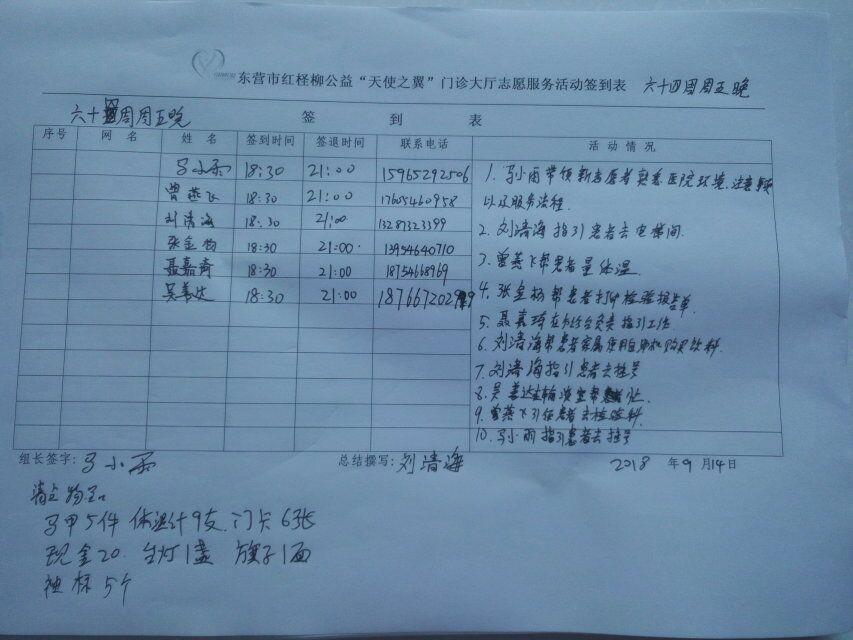 东营市红柽柳公益“天使之翼”门诊大厅志愿服务活动签到表 六十四周周五晚
六十四周周五晚 签到表
序号 网名 姓名 签到时间 签退时间 联系电话 活动情况
马小雨 18:30 21:00 15965292506
曾燕飞 18:30 21:00 17605460958
刘清海 18:30 21:00 13287323399
张金杨 18:30 21:00 13954640710
聂嘉琦 18:30 21:00 18754668969
吴善达 18:30 21:00
1. 马小雨带领新志愿者熟悉医院环境、注意事项
以及服务流程.
2. 刘清海指引患者去电梯间.
3. 曾燕飞帮患者量体温.
4. 张金杨帮患者打印检验报告单
5. 聂嘉琦在分诊台负责指引工作.
6. 刘清海帮患者家属使用自助机购买饮料.
7. 刘清海指引患者去挂号
8. 吴善达去输液室帮忙.
9. 曾燕飞引任患者去检验科.
10. 马小雨指引患者去挂号
组长签字: 马小雨 总结撰写: 刘清海 2018年9月14日
清点物品:
马甲5件 体温计9支. 门卡6张
现金20. 台灯1盏 旗子1面
袖标5个